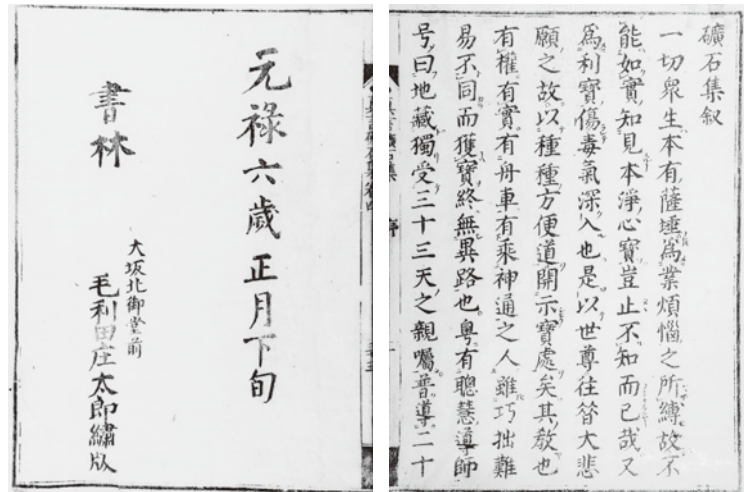 礦石集叙
一切衆生本有薩埵爲業煩惱之所縛故不
能如實知見本淨心寶豈止不知而已哉又
爲利寶傷毒氣深入也是以世尊往昔大悲
願之故以種種方便道開示寶處矣其教也
有權有實有舟車有乘神通之人雖巧拙難
易不同而獲寶終無異路也粤有聰慧導師
号曰地藏獨受三十三天之親囑普導二十
序
元禄六歲正月下旬
書林
大坂北御堂前
毛利田庄太郎繡版